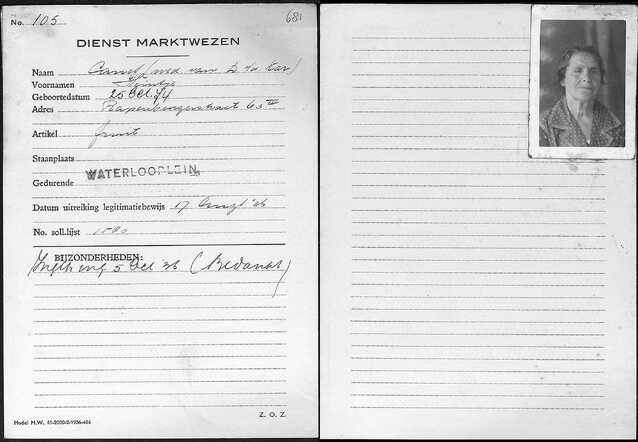 No. 105 681
DIENST MARKTWEZEN
Naam (wed van D v/d Kar)
Voornamen
Geboortedatum 25 Oct. 74
Adres Rapenburgerstraat 65 III
Artikel fruit
Staanplaats
Gedurende WATERLOOPLEIN.
Datum uitreiking legitimatiebewijs 17 Aug '36
No. soll.lijst
BIJZONDERHEDEN:
5 Oct 36
Z. O. Z.
Model M.W. 41-2000-8-1936-404